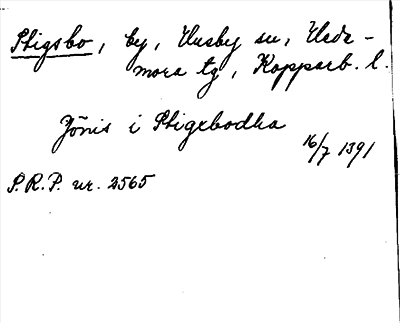 Stigsbo, by, Husby sn, Hede-
mora tg, Kopparb. l.
Jönis i Stigxbodha
16/7 1391
S.R.P. nr. 2565